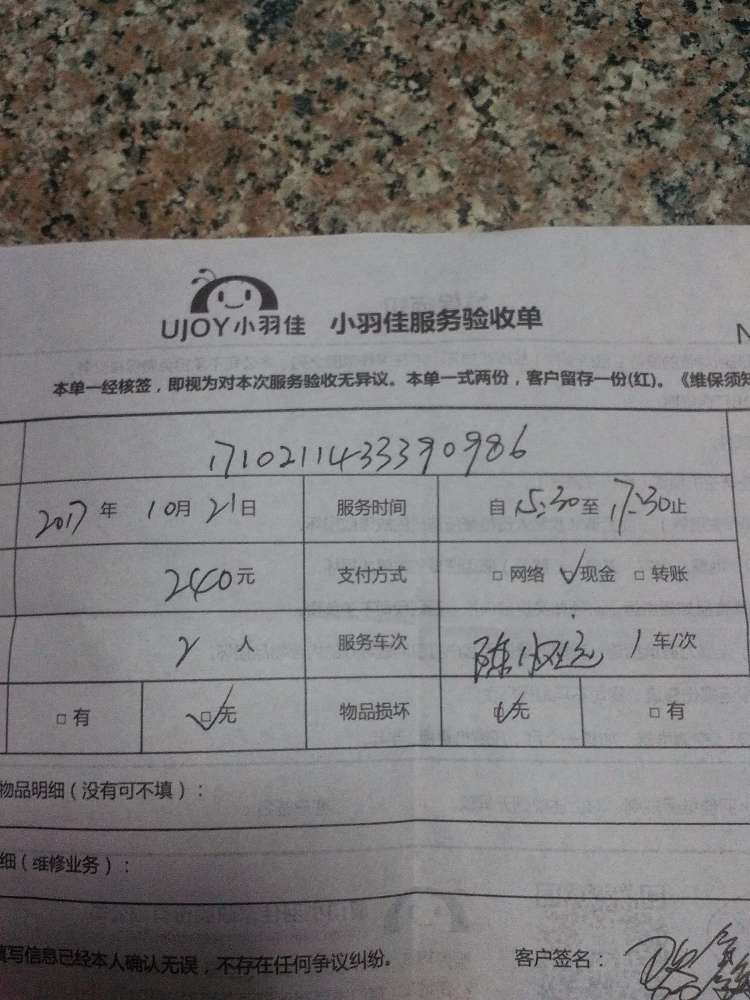 UJOY小羽佳 小羽佳服务验收单
N
本单一经核签，即视为对本次服务验收无异议。本单一式两份，客户留存一份(红)。《维保须知
1710211433390986
2017年 10月21日 服务时间 自 15:30 至 17:30 止
240元 支付方式 □ 网络 ✓现金 □ 转账
2 人 服务车次 1 车/次
□ 有 □无 物品损坏 无 □ 有
物品明细（没有可不填）：
细（维修业务）：
填写信息已经本人确认无误，不存在任何争议纠纷。 客户签名：